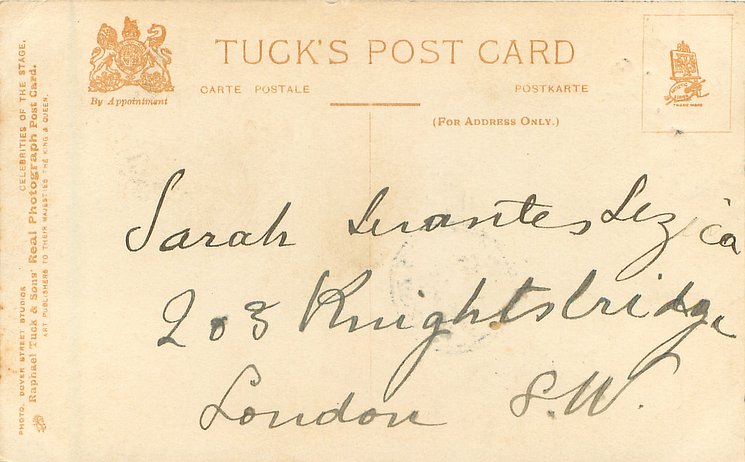 TUCK'S POST CARD
CARTE POSTALE
POSTKARTE
(FOR ADDRESS ONLY.)
By Appointment
TRADE MARK
Sarah
203 Knightsbridge
London S.W.
PHOTO. DOVER STREET STUDIOS. CELEBRITIES OF THE STAGE.
Raphael Tuck & Sons' Real Photograph Post Card.
ART PUBLISHERS TO THEIR MAJESTIES THE KING & QUEEN.